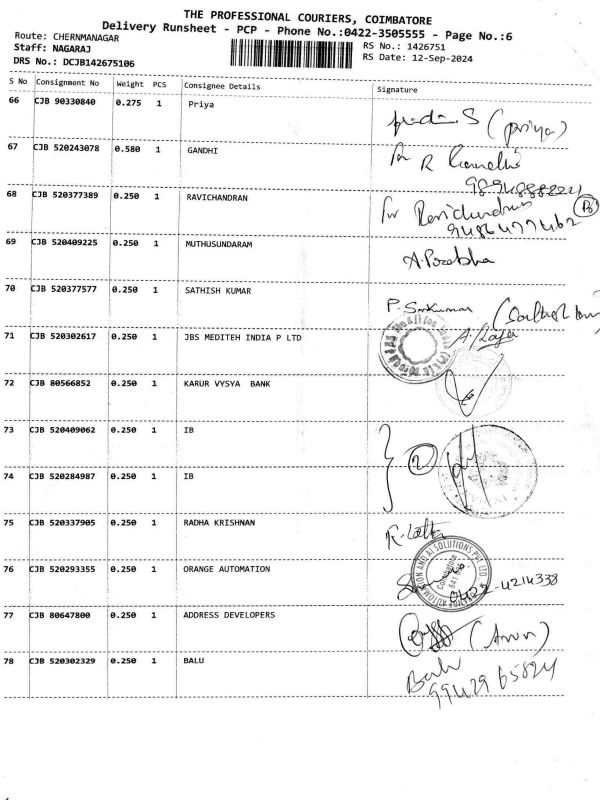 THE PROFESSIONAL COURIERS, COIMBATORE
Delivery Runsheet - PCP - Phone No.:0422-3505555 - Page No.:6
Route: CHERNMANAGAR
Staff: NAGARAJ
DRS No.: DCJB142675106
RS No.: 1426751
RS Date: 12-Sep-2024
S No Consignment No Weight PCS Consignee Details Signature
66 CJB 90330840 0.275 1 Priya
(priya)
67 CJB 520243078 0.580 1 GANDHI
for R
68 CJB 520377389 0.250 1 RAVICHANDRAN
for Ravichandran
9486477462
69 CJB 520409225 0.250 1 MUTHUSUNDARAM
A. Prabha
70 CJB 520377577 0.250 1 SATHISH KUMAR
71 CJB 520302617 0.250 1 JBS MEDITEH INDIA P LTD
72 CJB 80566852 0.250 1 KARUR VYSYA BANK
73 CJB 520409062 0.250 1 IB
2
74 CJB 520284987 0.250 1 IB
75 CJB 520337905 0.250 1 RADHA KRISHNAN
R. Latha
76 CJB 520293355 0.250 1 ORANGE AUTOMATION
AUTOMATION AND AI SOLUTIONS PVT. LTD.
0422-4214338
77 CJB 80647800 0.250 1 ADDRESS DEVELOPERS
(Arun)
78 CJB 520302329 0.250 1 BALU
Balu
9942965824